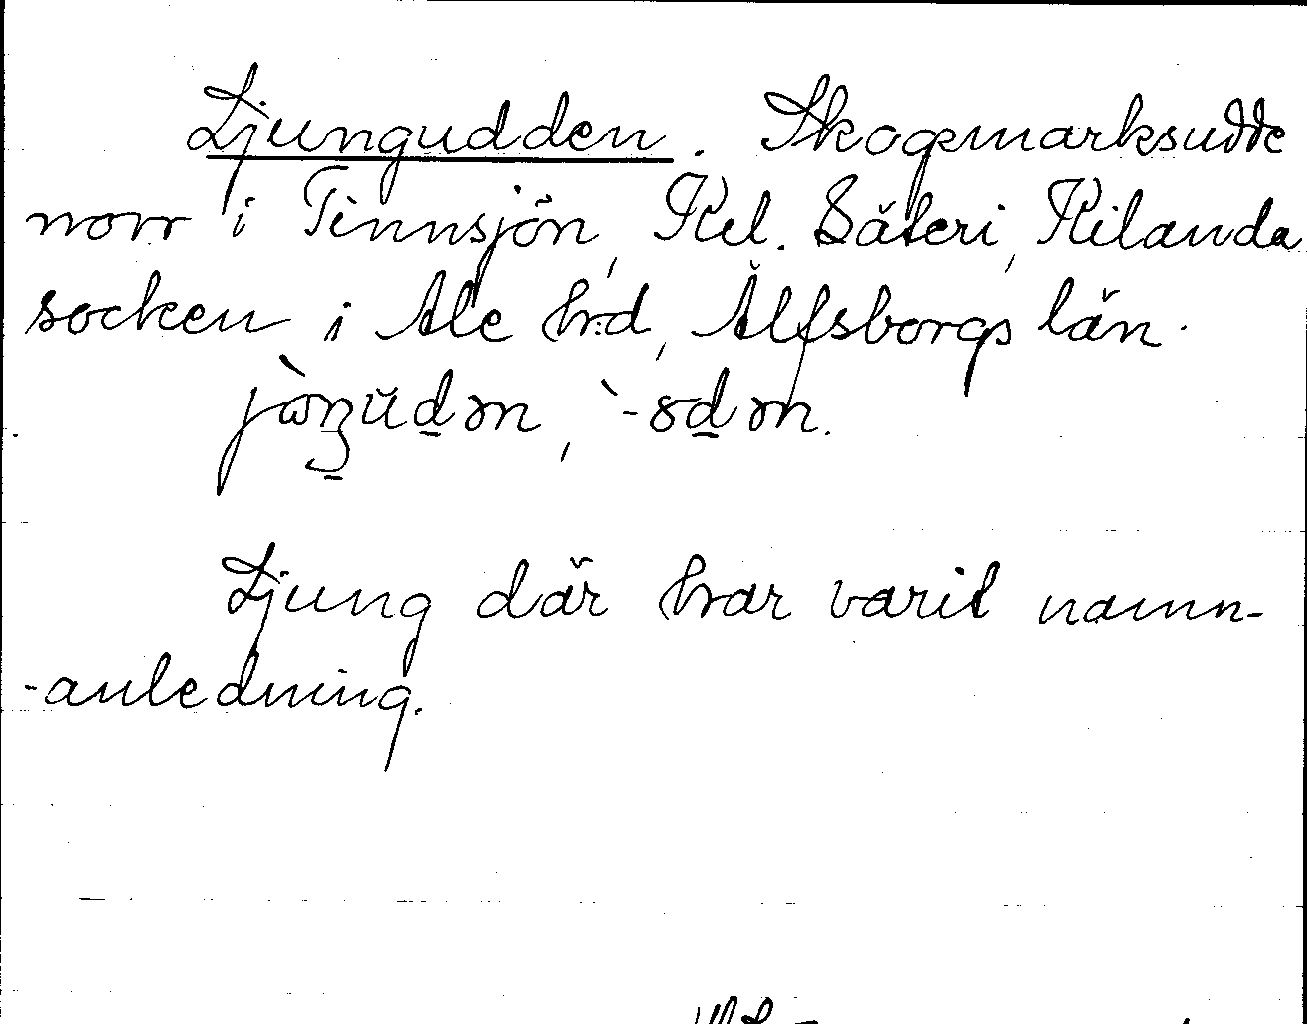 Ljungudden. Skogsmarksudde
norr i Tinnsjön, Kil. Säteri, Kilanda
socken i Ale h:d, Älfsborgs län.
Ljung där har varit namn-
-anledning.